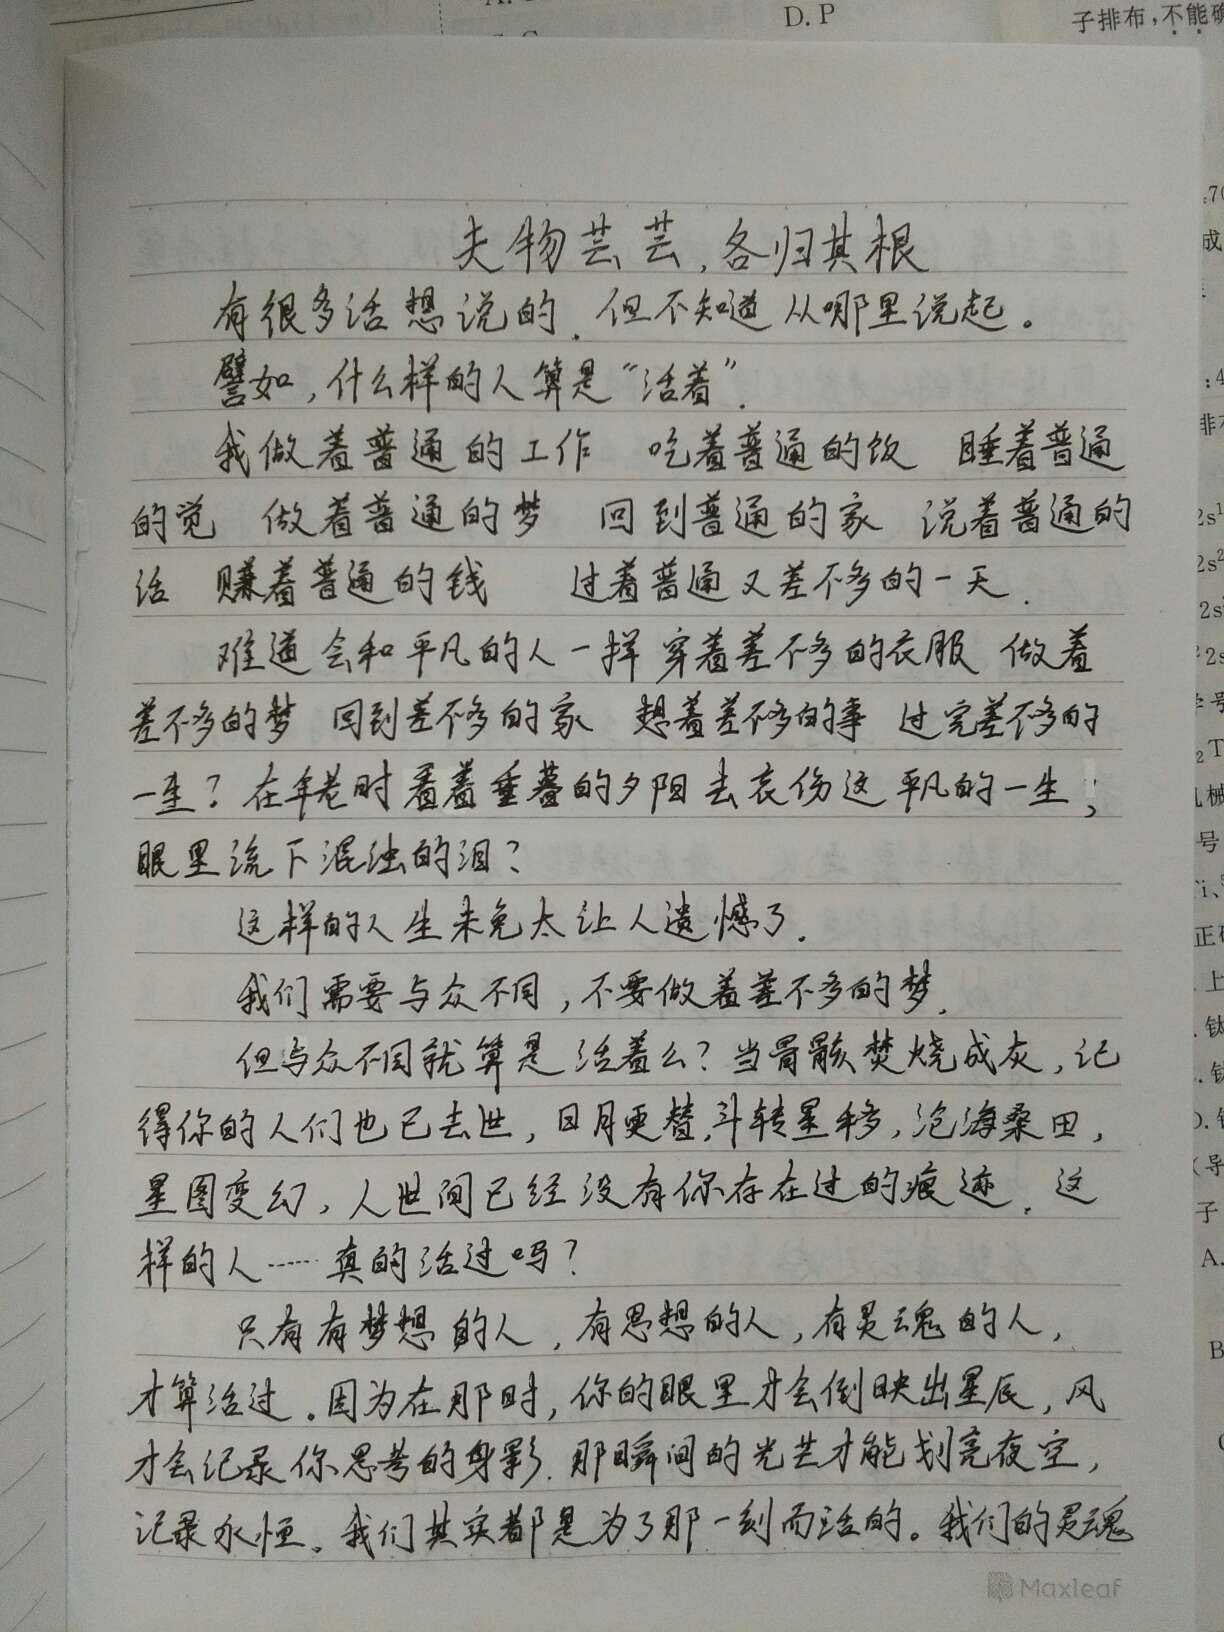 D. P
子排布，不能确
夫物芸芸，各归其根
有很多话想说的，但不知道从哪里说起。
譬如，什么样的人算是“活着”．
我做着普通的工作 吃着普通的饭 睡着普通
的觉 做着普通的梦 回到普通的家 说着普通的
话 赚着普通的钱 过着普通又差不多的一天．
难道会和平凡的人一样穿着差不多的衣服 做着
差不多的梦 回到差不多的家 想着差不多的事 过完差不多的
一生？在年老时看着垂暮的夕阳去哀伤这平凡的一生；
眼里流下混浊的泪？
这样的人生未免太让人遗憾了．
我们需要与众不同，不要做着差不多的梦．
但与众不同就算是活着么？当骨骸焚烧成灰，记
得你的人们也已去世，日月更替，斗转星移，沧海桑田，
星图变幻，人世间已经没有你存在过的痕迹．这
样的人……真的活过吗？
只有有梦想的人，有思想的人，有灵魂的人，
才算活过。因为在那时，你的眼里才会倒映出星辰，风
才会记录你思考的身影．那瞬间的光芒才能划亮夜空，
记录永恒。我们其实都是为了那一刻而活的。我们的灵魂
Maxleaf